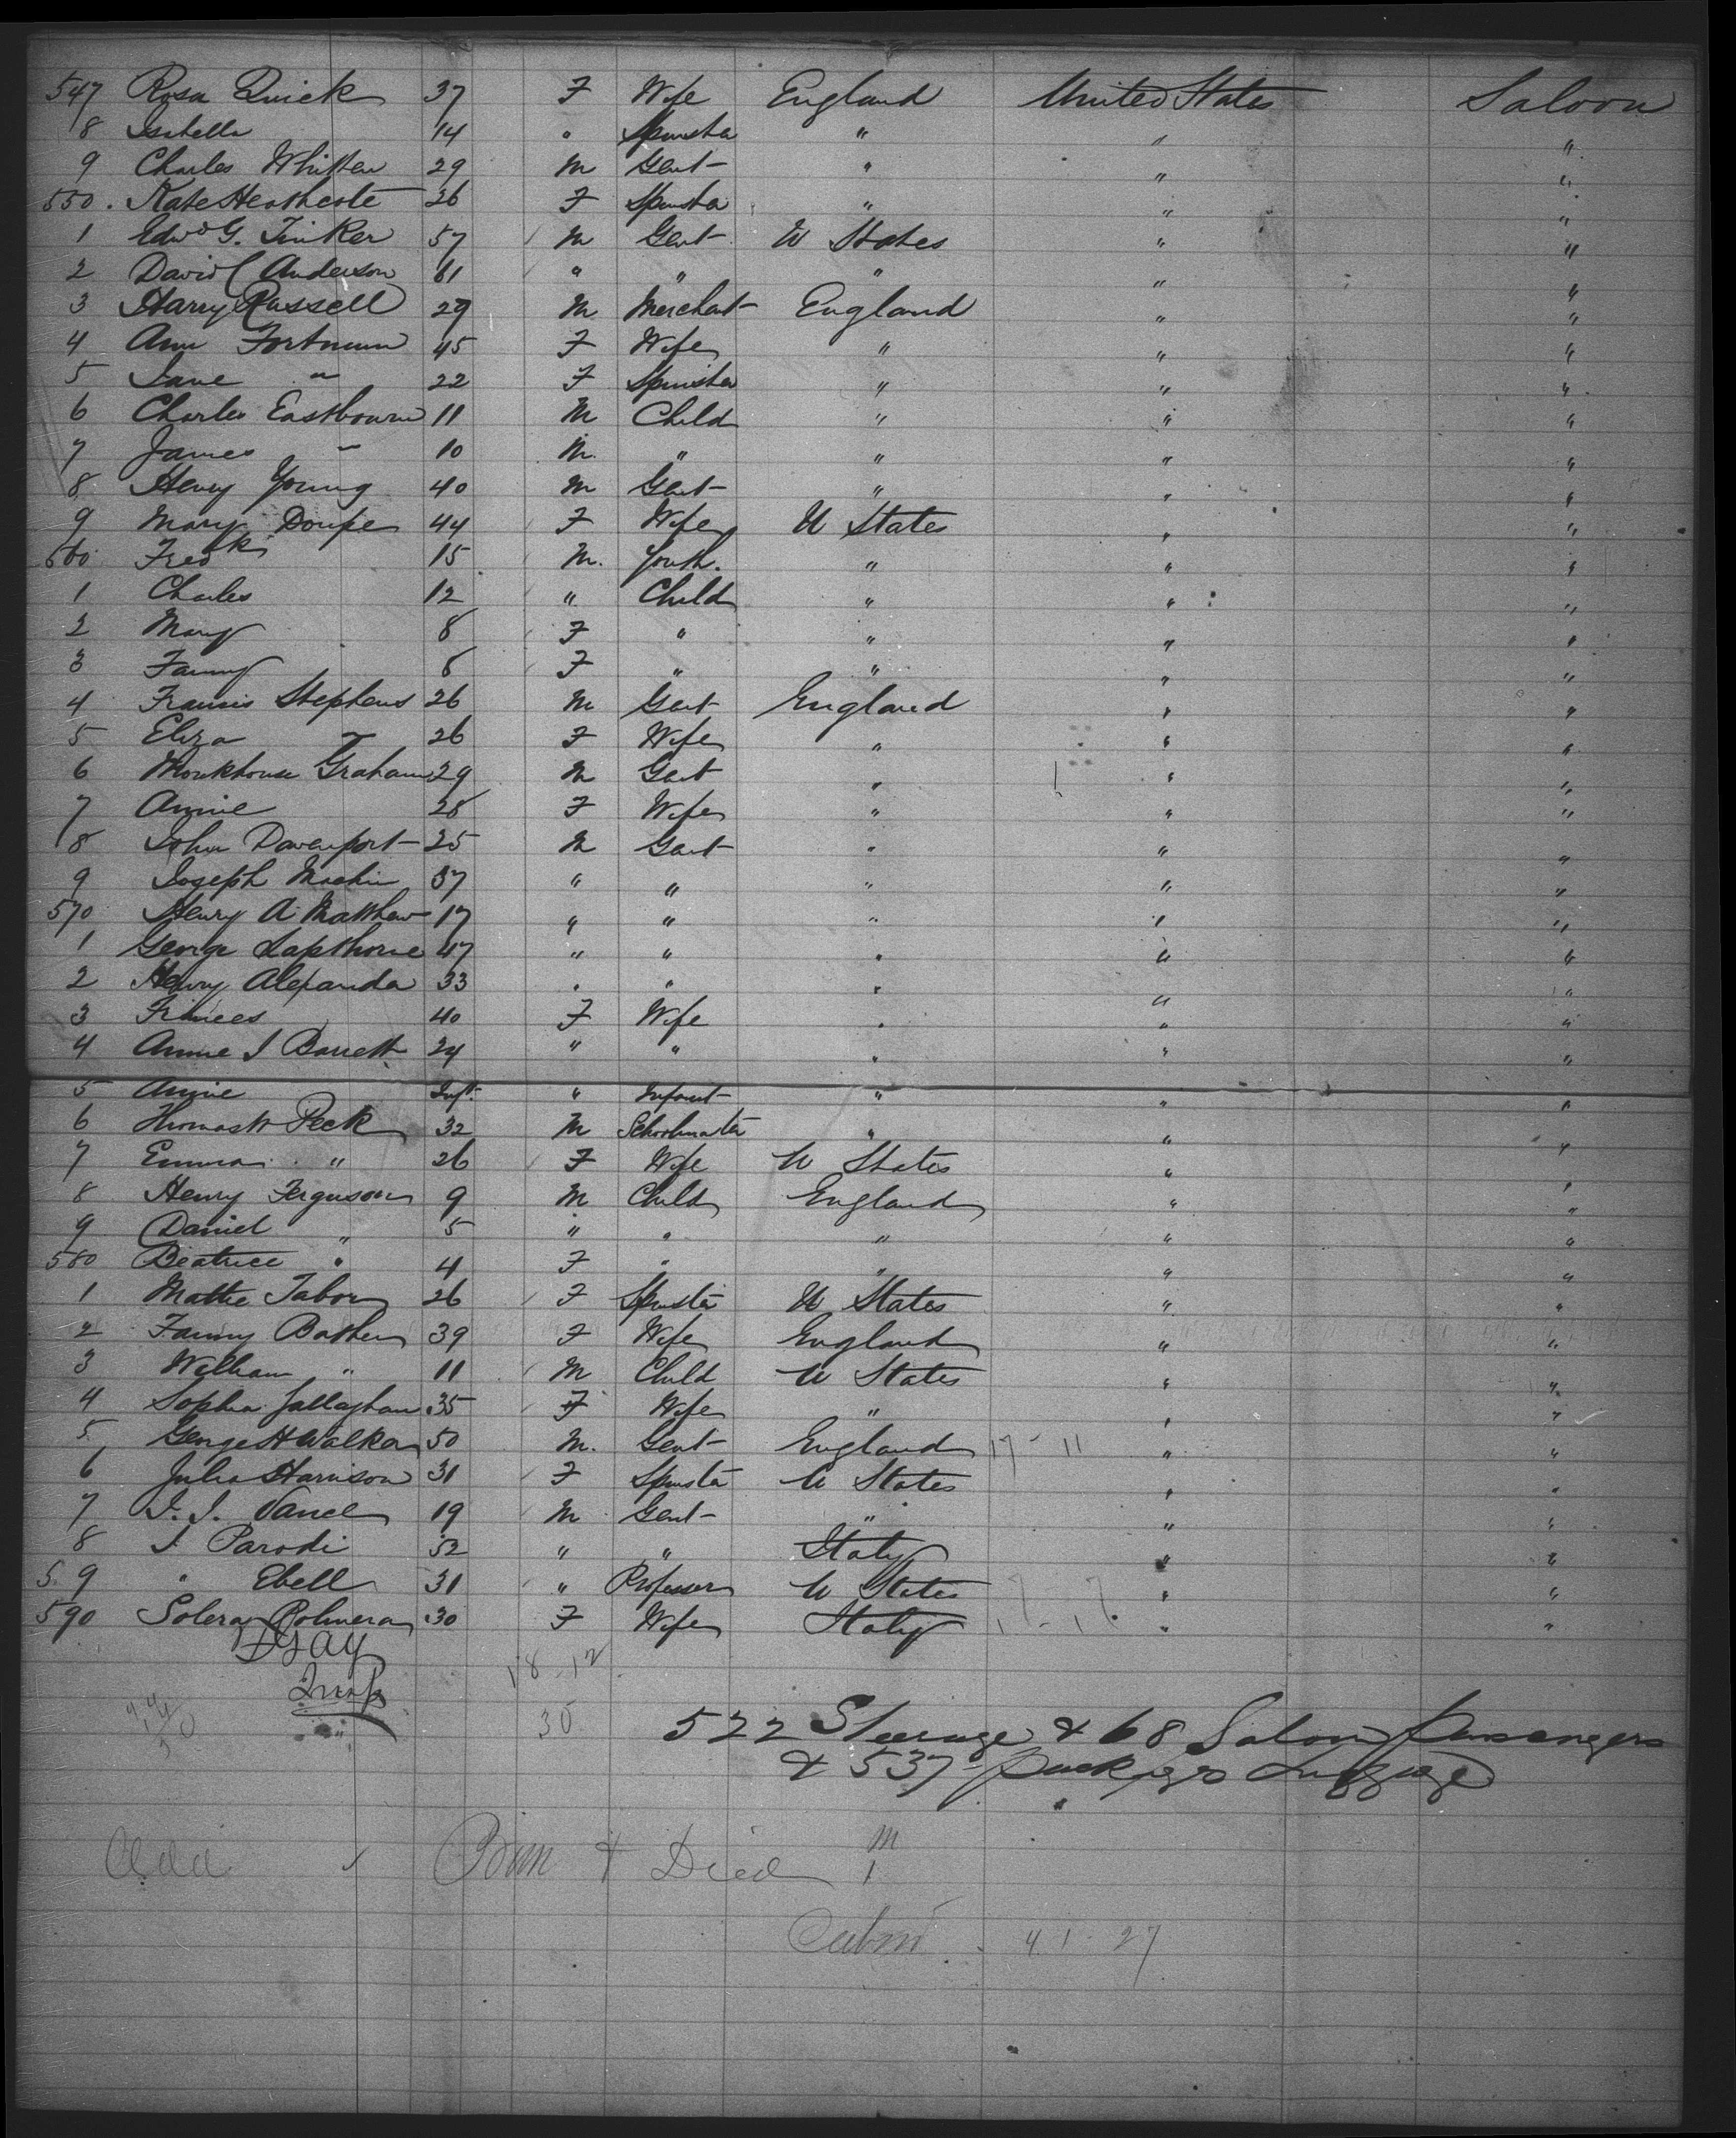 547 Rosa Quick 37 F Wife England United States Saloon
8 Isabella 14 " Spinster " " "
9 Charles Whitten 29 M Gent " " "
550. Kate Heathcote 26 F Spinster " " "
1 Edwd G. Tinker 57 M Gent U States " "
2 David C Anderson 61 " " " " "
3 Harry Russell 29 M Merchant England " "
4 Ann Fortnum 45 F Wife " " "
5 Jane " 22 F Spinster " " "
6 Charles Eastbourn 11 M Child " " "
7 James " 10 M. " " " "
8 Henry Young 40 M Gent " " "
9 Mary Doupe 44 F Wife U States " "
560 Fredk 15 M. Youth. " " "
1 Charles 12 " Child " " "
2 Mary 8 F " " " "
3 Fanny 6 F " " " "
4 Francis Stephens 26 M Gent England " "
5 Eliza 26 F Wife " " "
6 Monkhouse Graham 29 M Gent " " "
7 Annie 28 F Wife " " "
8 John Davenport 25 M Gent " " "
9 Joseph Machin 37 " " " " "
570 Henry A Matthew 17 " " " " "
1 George Lapthorne 47 " " " " "
2 Henry Alexander 33 " " " " "
3 Frances 40 F Wife " " "
4 Annie J Barrett 24 " " " " "
5 Annie Inft. " Infant " " "
6 Thomas W Peck 32 M Schoolmaster " " "
7 Emma " 26 F Wife U States " "
8 Henry Ferguson 9 M Child England " "
9 Daniel " 5 " " " " "
580 Beatrice " 4 F " " " "
1 Mattie Tabor 26 F Spinster U States " "
2 Fanny Bathen 39 F Wife England " "
3 William " 11 M Child U States " "
4 Sophia Gallaghan 35 F Wife " " "
5 George H Walker 50 M. Gent England 17-11 " "
6 Julia Harrison 31 F Spinster U States " "
7 J. J. Vance 19 M Gent " " "
8 J Parodi 52 " " Italy " "
5 9 " Ebell 31 " Professor U States " "
590 Solera 30 F Wife Italy 17-17. " "
Gay
Insp
18-12
30
522 Steerage & 68 Saloon Passengers
& 537 packages Luggage
Add Born & Died M 1
Cabin 41-27